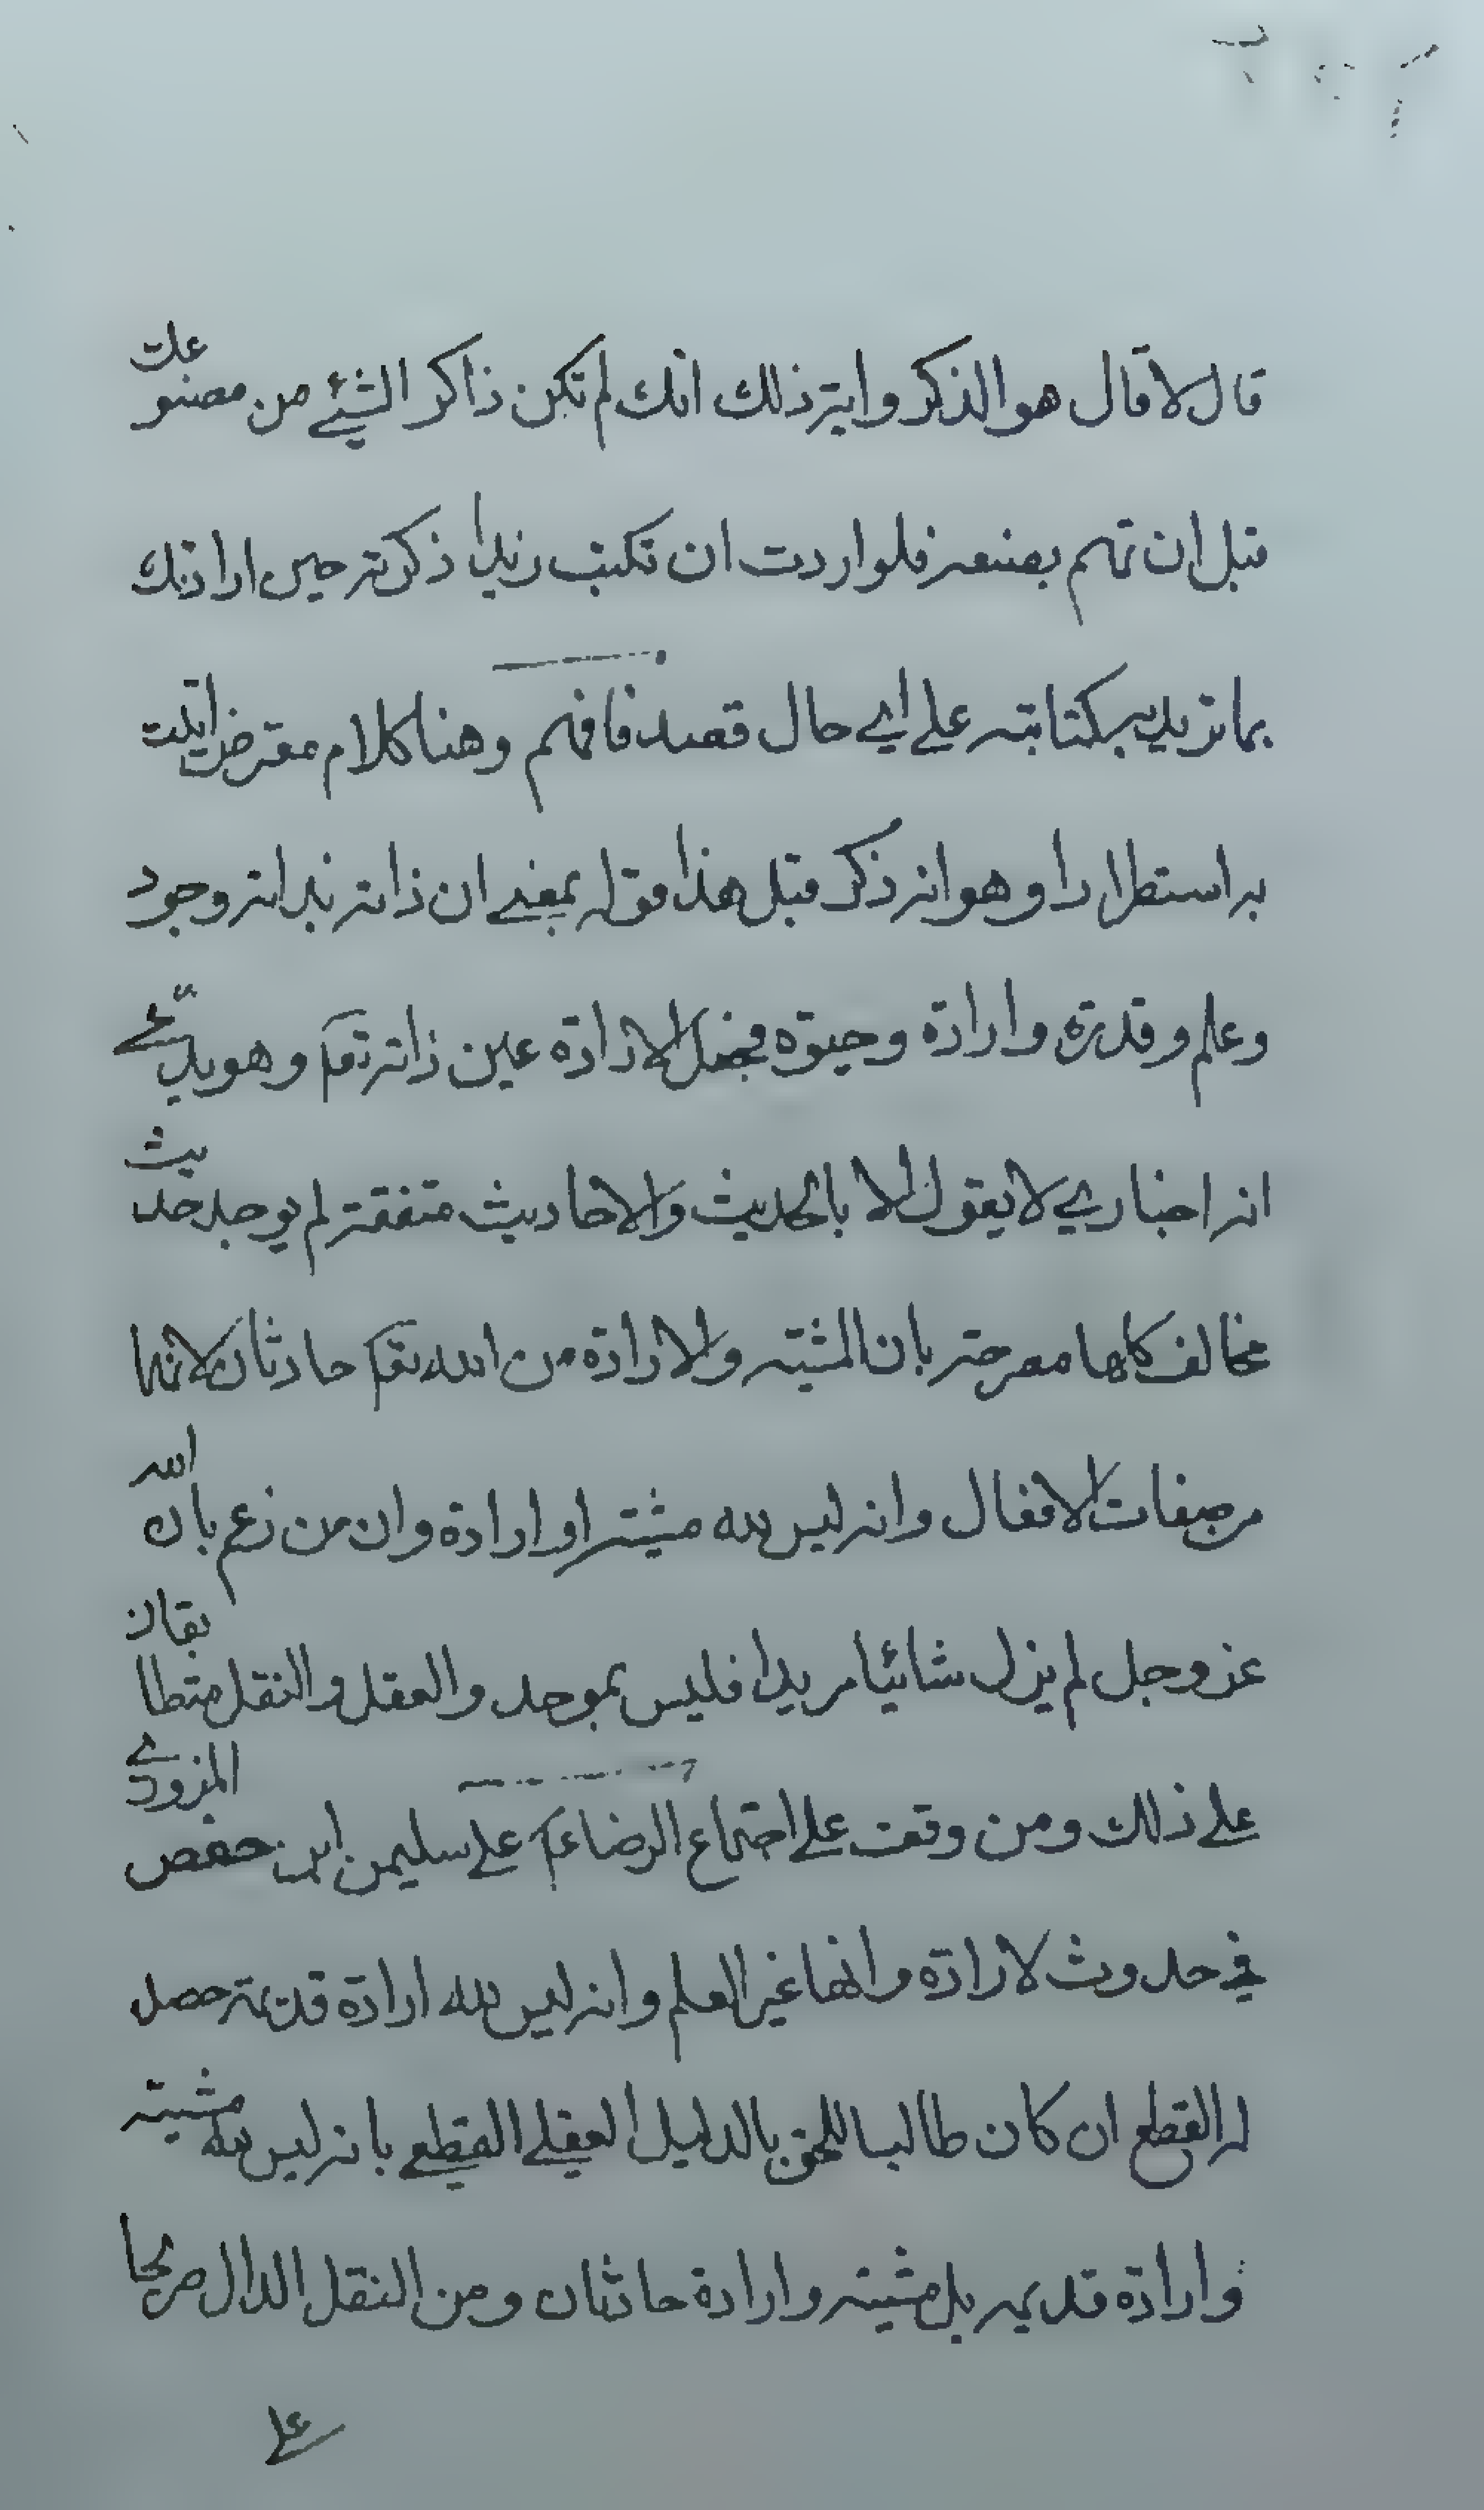 قال لا قال هو الذكر وايته ذلك انك لم تكن ذاكر الشيئ من مصنوعات
قبل ان تهم بصنعه فلو اردت ان تكتب زيدا ذكرته حين ارادتك
بما تريد به كتابته على اي حال قصد فافهم وهنا كلام معترض اتيت
به استطرادا وهو انه ذكر قبل هذا قوله بمعنى ان ذاته بذاته وجود
وعلم وقدرة وارادة وحيوة فجعل الارادة عين ذاته تعا وهو يدّعي
انه اخباري لا يقول الا بالحديث والاحاديث متفقة لم يوجد حديث
مخالف كلها مصرحة بان المشيته والارادة من الله تعا حادثان لانهما
من صفات الافعال وانه ليس لله مشيته او ارادة وان من زعم بان الله
عز وجل لم يزل شائيا مريدا فليس بموحد والعقل والنقل متطابقان
على ذلك ومن وقف على احتجاع الرضا ع على سليمن ابن حفص المزودي
في حدوث لارادة وانها غير العلم وانه ليس لله ارادة قديمة حصل
له القطع ان كان طالبا للحق بالدليل العقلي القطعي بانه ليس لله مشيته
وارادة قديمه بل مشيته وارادة حادثان ومن النقل الدال صريحا
على